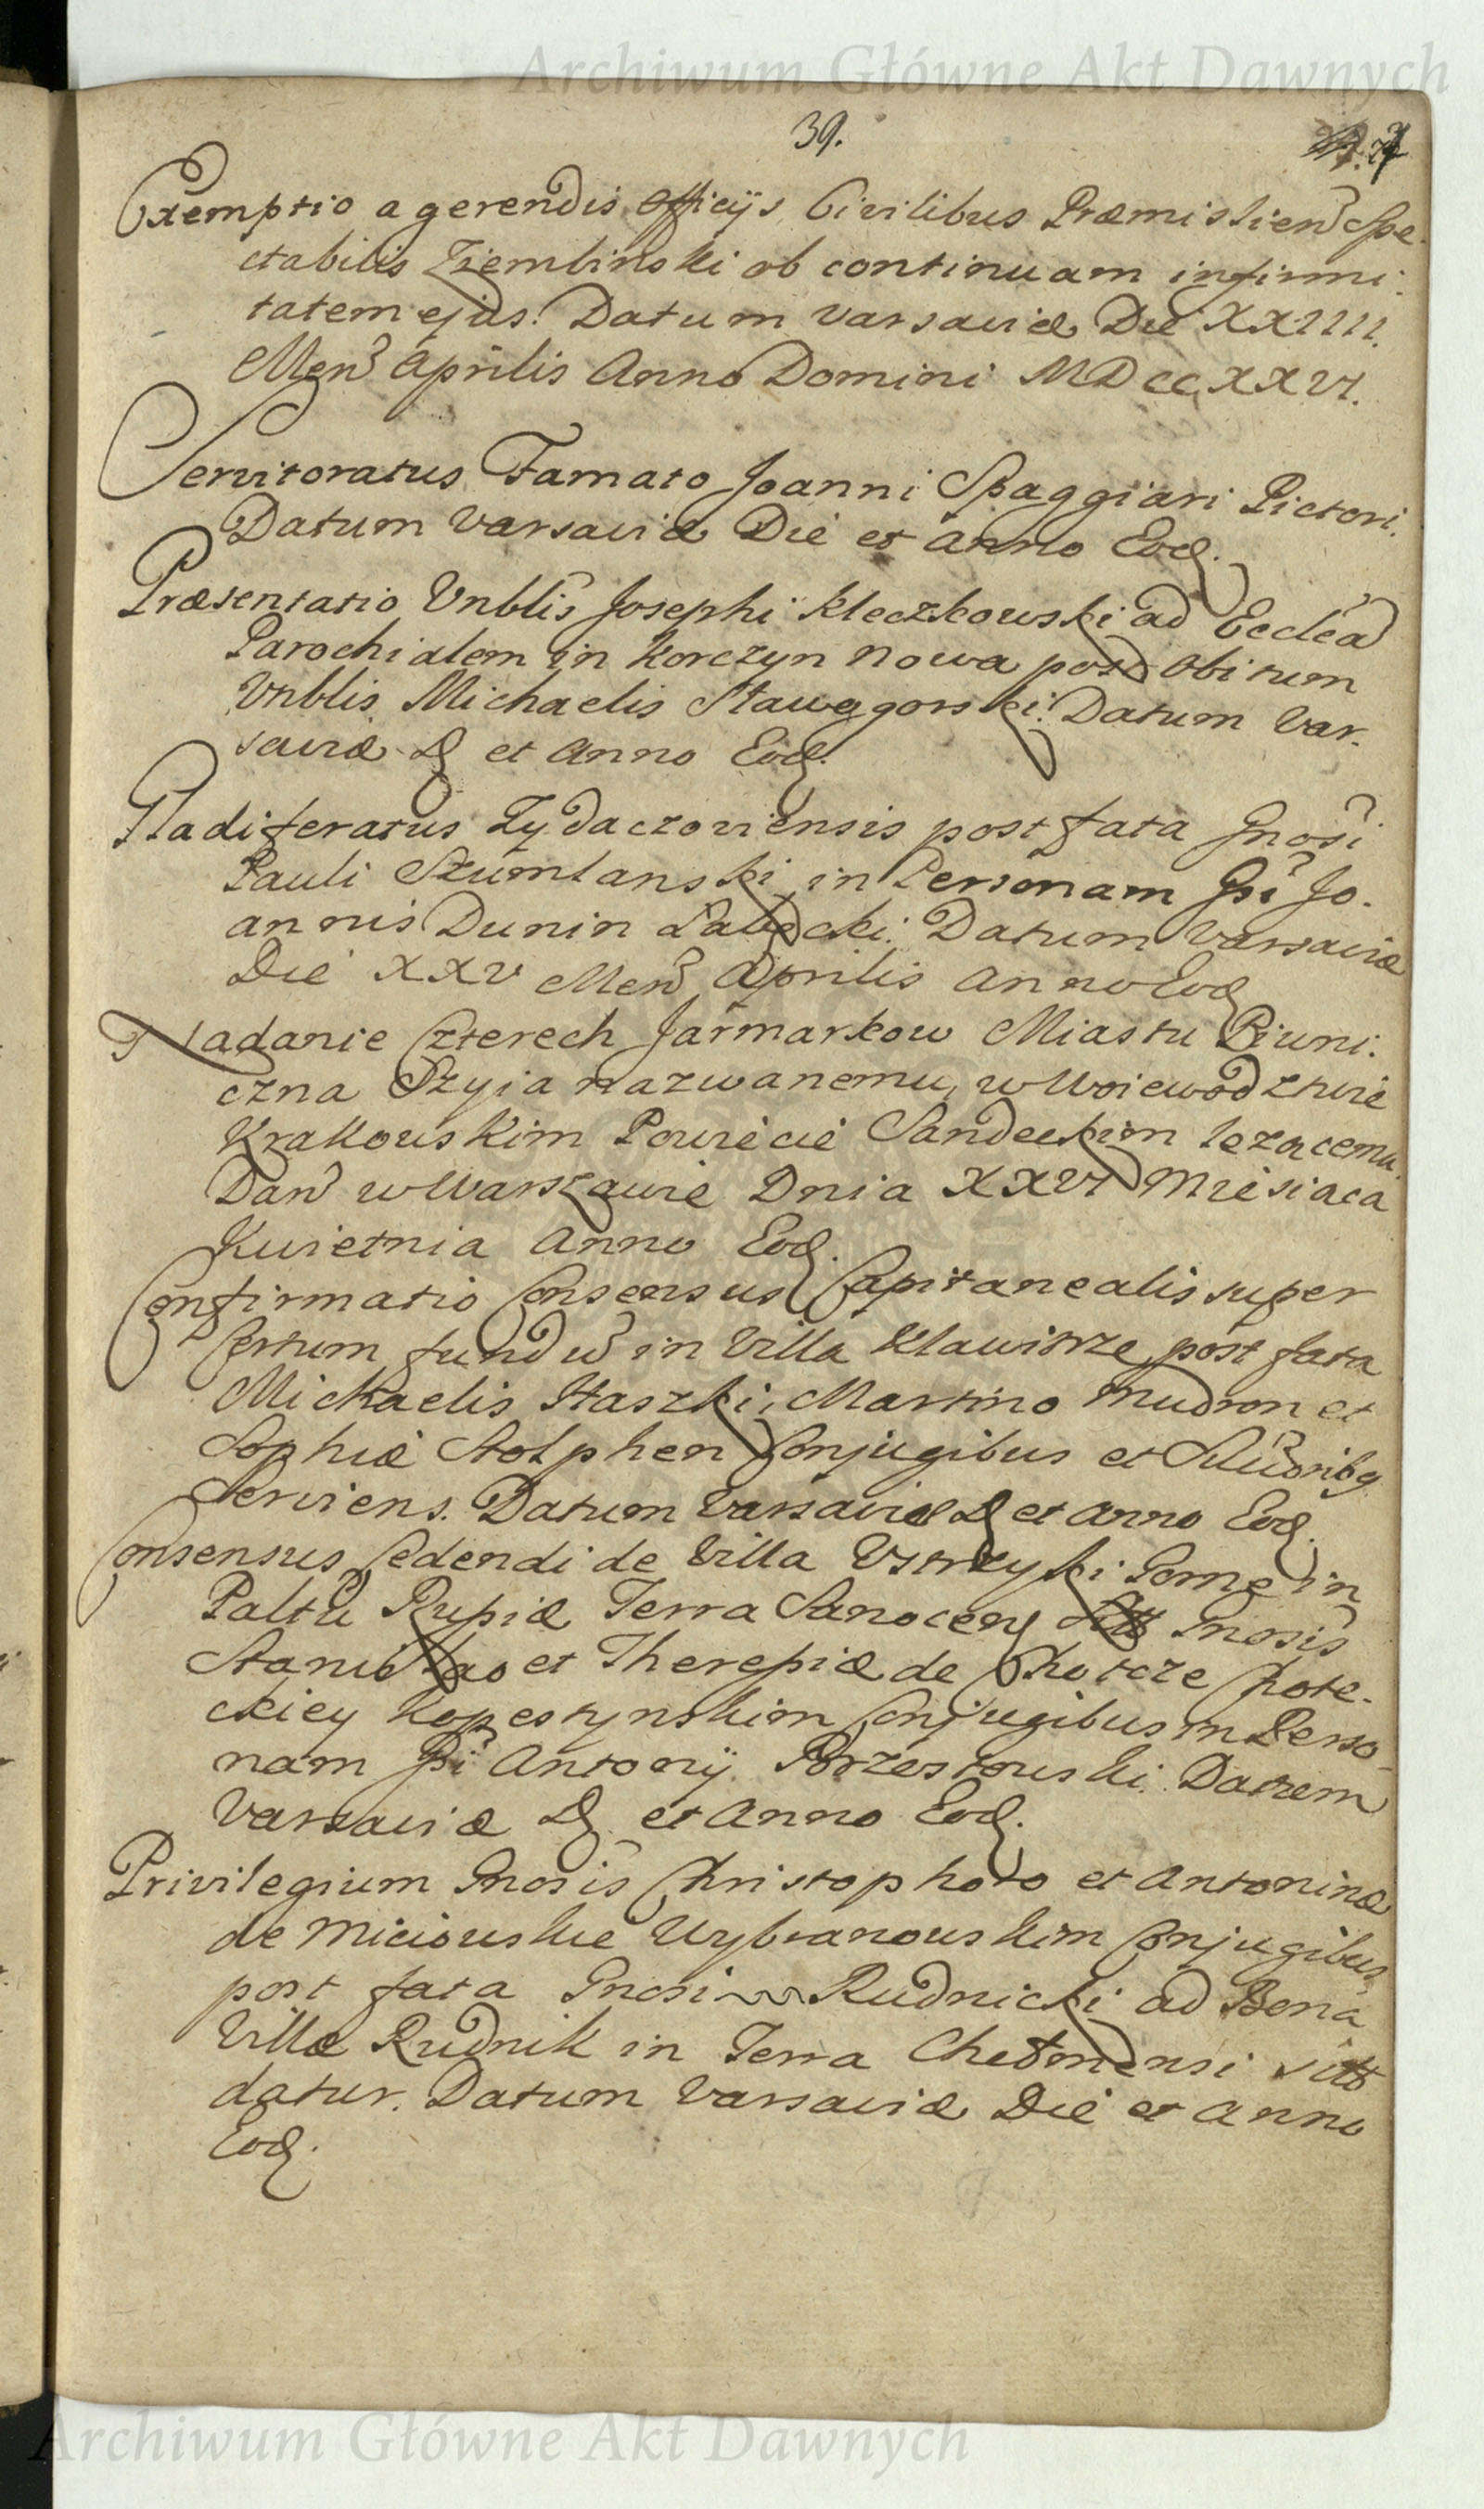 Archiwum Główne Akt Dawnych
39.
Exemptio a gerendis officÿs Civilibus Præmislien Spe-
ctabilis Ziembinski ob continuam infirmi-
tatem ejus. Datum Varsaviæ Die XXIIII.
Men Aprilis Anno Domini MDCCXXVI.
Servitoratus Famato Joanni Spaggiari Pictori.
Datum Varsaviæ Die et Anno Eod.
Præsentatio Vnblis Josephi Kleczkowski ad Eccleã
Parochialem in Korczyn Nowa post obitum
Vnblis Michaelis Stawggorski. Datum Var-
saviæ D et Anno Eod.
Gladiferatus Zydaczoviensis post fata Gnosi
Pauli Szumlanski in Personam Gsi Jo-
annis Dunin Łabęcki. Datum Varsaviæ
Die XXV Men Aprilis Anno Eod
Nadanie Czterech Jarmarkow Miastu Piwni-
czna Szyia nazwanemu, w Woiewodztwie
Krakowskim Powiecie Sandeckim lezącemu
Dan w Warszawie Dnia XXVI Miesiaca
Kwietnia Anno Eod.
Confirmatio Consensus Capitanealis super
Certum fundũ in Villa Klawisze, post fata
Michaelis Staszki, Martino Mudron et
Sophiæ Stolphen Conjugibus et
Serviens. Datum Varsaviæ D et Anno Eod.
Consensus Cedendi de Villa Vstrzyki Gorne in
Paltu Rupiæ Terra Sanocen Gnosis
Stanislao et Theresiæ de Chotcze Chote-
ckiey Kopestynskim Conjugibus in Perso-
nam Gsi Antonÿ Porzestowski. Datum
Varsaviæ D et Anno Eod.
Privilegium Gnosis Christophoro et Antoninæ
de Miciowskie Wybranowskim Conjugibus
post fata Gnosi Rudnicki ad Bona
Villæ Rudnik in Terra Chełmensi sitt
datur. Datum Varsaviæ Die et Anno
Eod.
Archiwum Główne Akt Dawnych